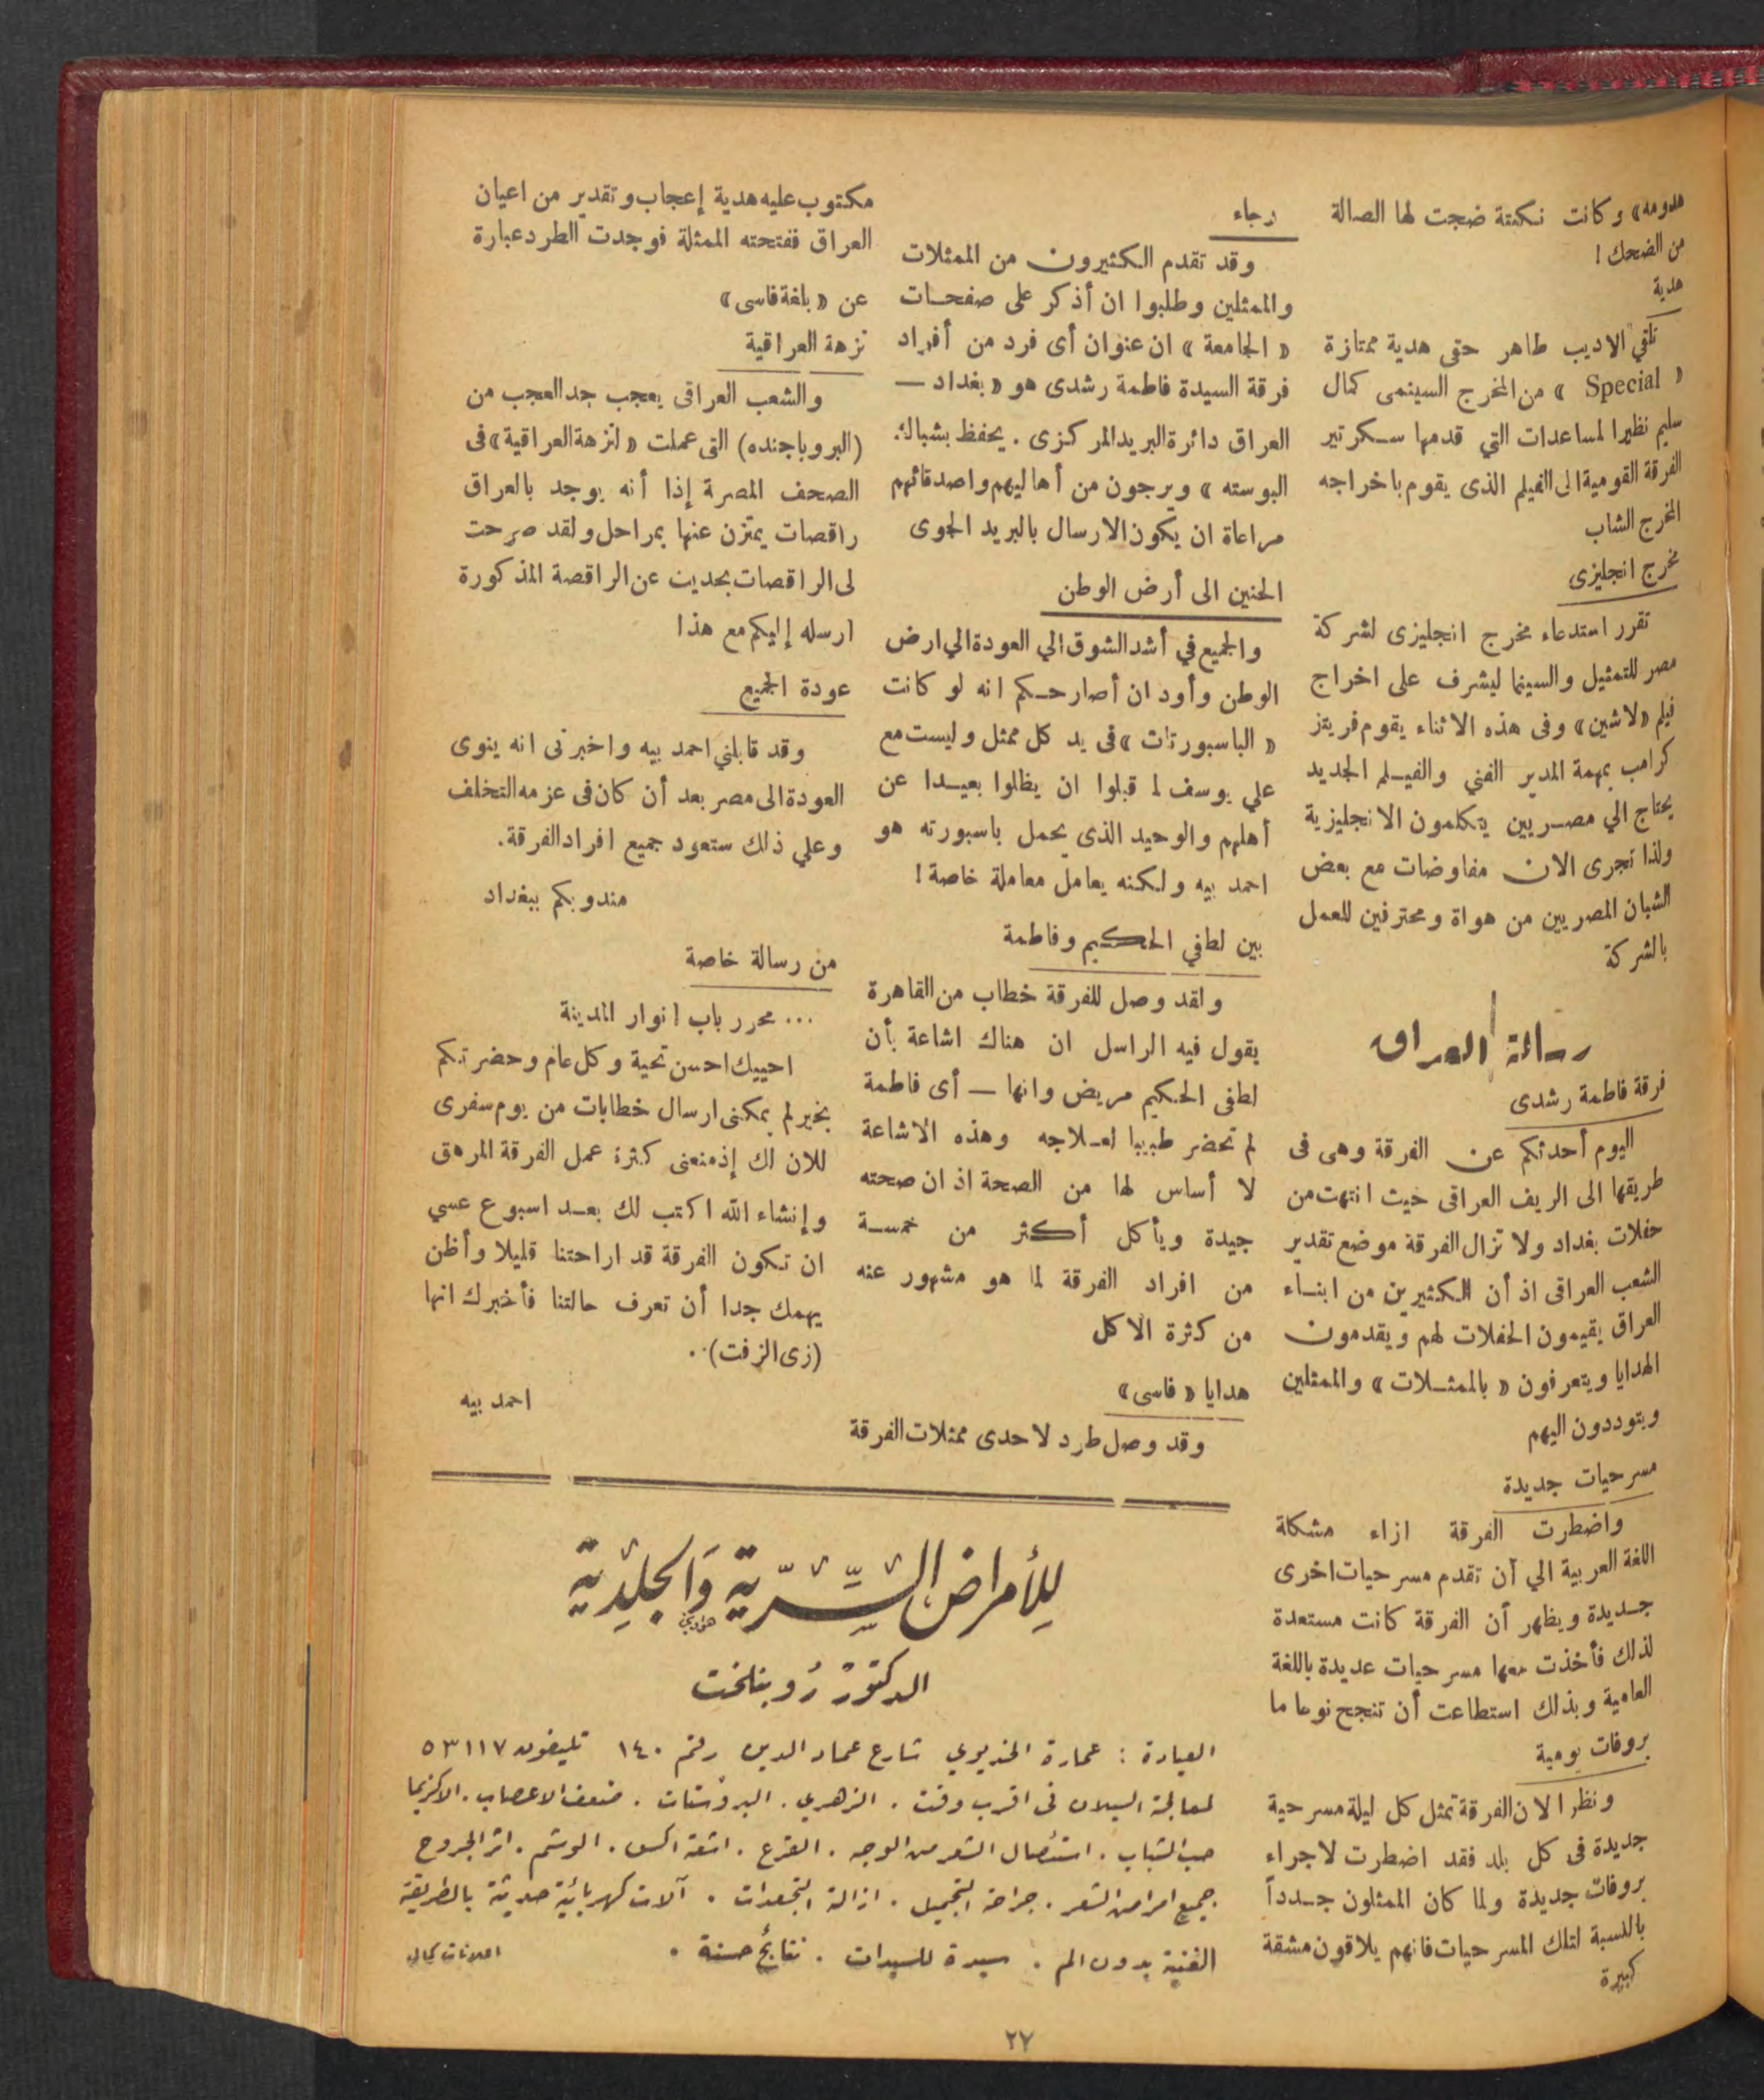 هدومه» وكانت نكتة ضجت لها الصالة
من الضحك !
هدية
تلقي الاديب طاهر حقى هدية ممتازة
« Special » من المخرج السينمى كمال
سليم نظيرا لمساعدات التي قدمها سكرتير
الفرقة القومية الى الفيلم الذى يقوم باخراجه
المخرج الشاب
مخرج انجليزى
تقرر استدعاء مخرج انجليزى لشركة
مصر للتمثيل والسينما ليشرف على اخراج
فيلم «لاشين» وفى هذه الاثناء يقوم فريتز
كرامب بمهمة المدير الفني والفيلم الجديد
يحتاج الي مصريين يتكلمون الانجليزية
ولذا تجرى الان مفاوضات مع بعض
الشبان المصريين من هواة ومحترفين للعمل
بالشركة
رسالة العراق
فرقة فاطمة رشدى
اليوم أحدثكم عن الفرقة وهى فى
طريقها الى الريف العراقى حيث انتهت من
حفلات بغداد ولا تزال الفرقة موضع تقدير
الشعب العراقى اذ أن الكثيرين من ابناء
العراق يقيمون الحفلات لهم ويقدمون
الهدايا ويتعرفون « بالممثلات » والممثلين
ويتوددون اليهم
مسرحيات جديدة
واضطرت الفرقة ازاء مشكلة
اللغة العربية الي أن تقدم مسرحيات اخرى
جديدة ويظهر أن الفرقة كانت مستعدة
لذلك فأخذت معها مسرحيات عديدة باللغة
العامية وبذلك استطاعت أن تنجح نوعا ما
بروفات يومية
ونظرا لان الفرقة تمثل كل ليلة مسرحية
جديدة فى كل بلد فقد اضطرت لاجراء
بروفات جديدة ولما كان الممثلون جدداً
بالنسبة لتلك المسرحيات فانهم يلاقون مشقة
كبيرة
رجاء
وقد تقدم الكثيرون من الممثلات
والممثلين وطلبوا ان أذكر على صفحات
« الجامعة » ان عنوان أى فرد من أفراد
فرقة السيدة فاطمة رشدى هو « بغداد —
العراق دائرة البريد المركزى . يحفظ بشباك
البوسته » ويرجون من أهاليهم واصدقائهم
مراعاة ان يكون الارسال بالبريد الجوى
الحنين الى أرض الوطن
والجميع في أشد الشوق الي العودة الي ارض
الوطن وأود ان أصارحكم انه لو كانت
« الباسبورتات » فى يد كل ممثل وليست مع
علي يوسف لما قبلوا ان يظلوا بعيدا عن
أهلهم والوحيد الذى يحمل باسبورته هو
احمد بيه ولكنه يعامل معاملة خاصة !
بين لطفي الحكيم وفاطمة
ولقد وصل للفرقة خطاب من القاهرة
يقول فيه الراسل ان هناك اشاعة بأن
لطفى الحكيم مريض وانها — أى فاطمة
لم تحضر طبيبا لعلاجه وهذه الاشاعة
لا أساس لها من الصحة اذ ان صحته
جيدة ويأكل أكثر من خمسة
من افراد الفرقة لما هو مشهور عنه
من كثرة الاكل
هدايا « فاسى »
وقد وصل طرد لاحدى ممثلات الفرقة
مكتوب عليه هدية إعجاب وتقدير من اعيان
العراق ففتحته الممثلة فوجدت الطرد عبارة
عن « بلغة فاسى »
نزهة العراقية
والشعب العراقى يعجب جد العجب من
(البروباجنده) التى عملت « لنزهة العراقية » فى
الصحف المصرة إذا أنه يوجد بالعراق
راقصات يمتزن عنها بمراحل ولقد صرحت
لى الراقصات بحديث عن الراقصة المذكورة
ارسله إليكم مع هذا
عودة الجميع
وقد قابلني احمد بيه واخبرنى انه ينوى
العودة الى مصر بعد أن كان فى عزمه التخلف
وعلي ذلك ستعود جميع افراد الفرقة .
مندوبكم ببغداد
من رسالة خاصة
... محرر باب انوار المدينة
احييك احسن تحية وكل عام وحضرتكم
بخير لم يمكنى ارسال خطابات من يوم سفرى
للان لك إذ منعنى كثرة عمل الفرقة المرهق
وإنشاء الله اكتب لك بعد اسبوع عسي
ان تكون الفرقة قد اراحتنا قليلا وأظن
يهمك جدا أن تعرف حالتنا فأخبرك انها
(زى الزفت) ..
احمد بيه
للأمراض السّرّية وَالجلدية
الدكتور روبنلخت
العيادة : عمارة الخديوي شارع عماد الدين رقم ١٤٠ تليفون ٥٣١١٧
لمعالجة السيلان فى اقرب وقت . الزهري . البروستات . ضعف الاعصاب . الاكزيما
حب الشباب . استئصال الشعر من الوجه . القرع . اشعة اكس . الوشم . اثر الجروح
جميع امراض الشعر . جراحة التجميل . ازالة التجعدات . آلات كهربائية حديثة بالطريقة
الفنية بدون الم . سيدة للسيدات . نتائج حسنة .
اعلانات كمال
٢٧